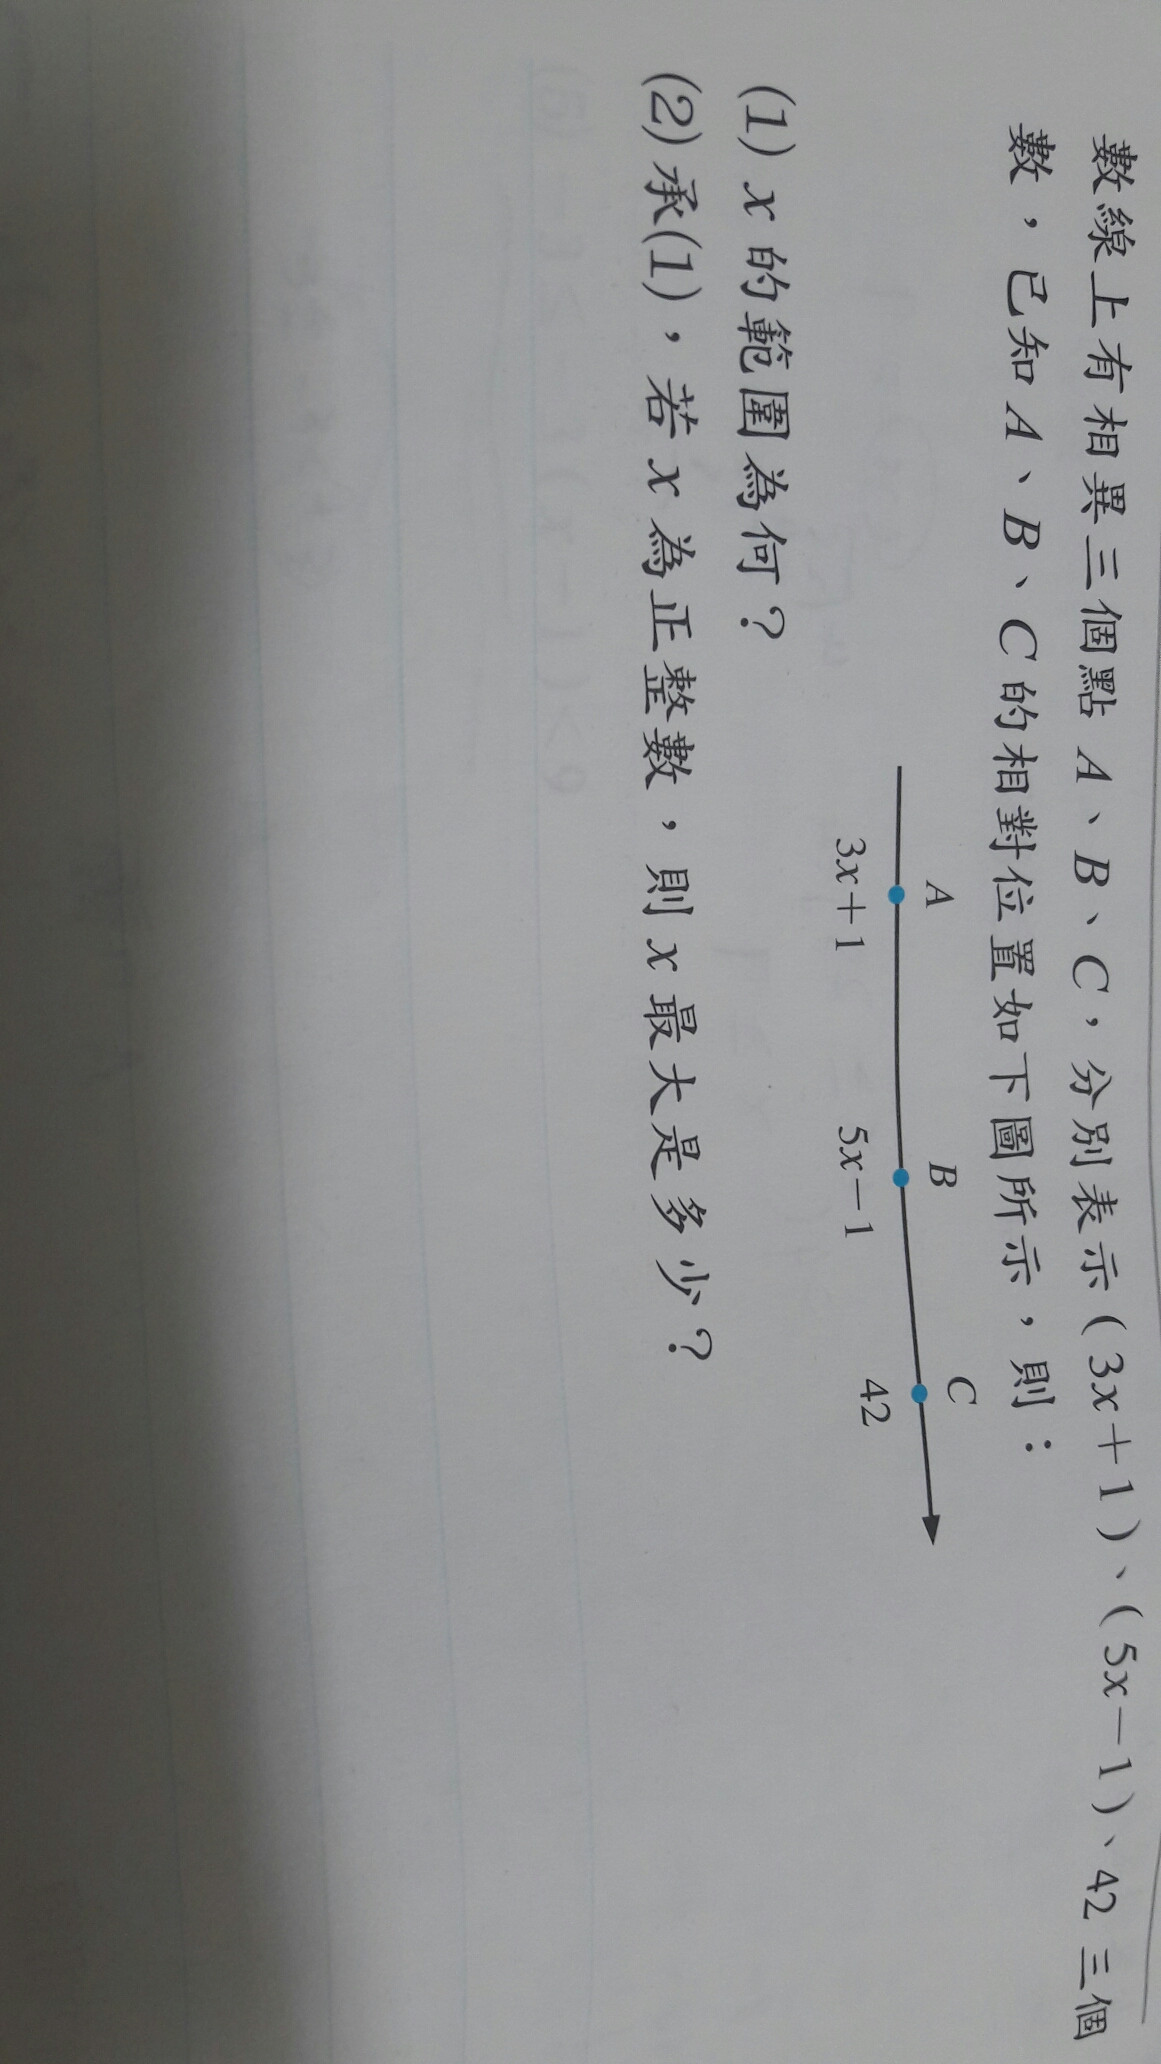 數線上有相異三個點 A、B、C，分別表示(3x＋1)、(5x－1)、42 三個
數，已知 A、B、C 的相對位置如下圖所示，則：
A B C
3x＋1 5x－1 42
(1) x 的範圍為何？
(2) 承(1)，若 x 為正整數，則 x 最大是多少？